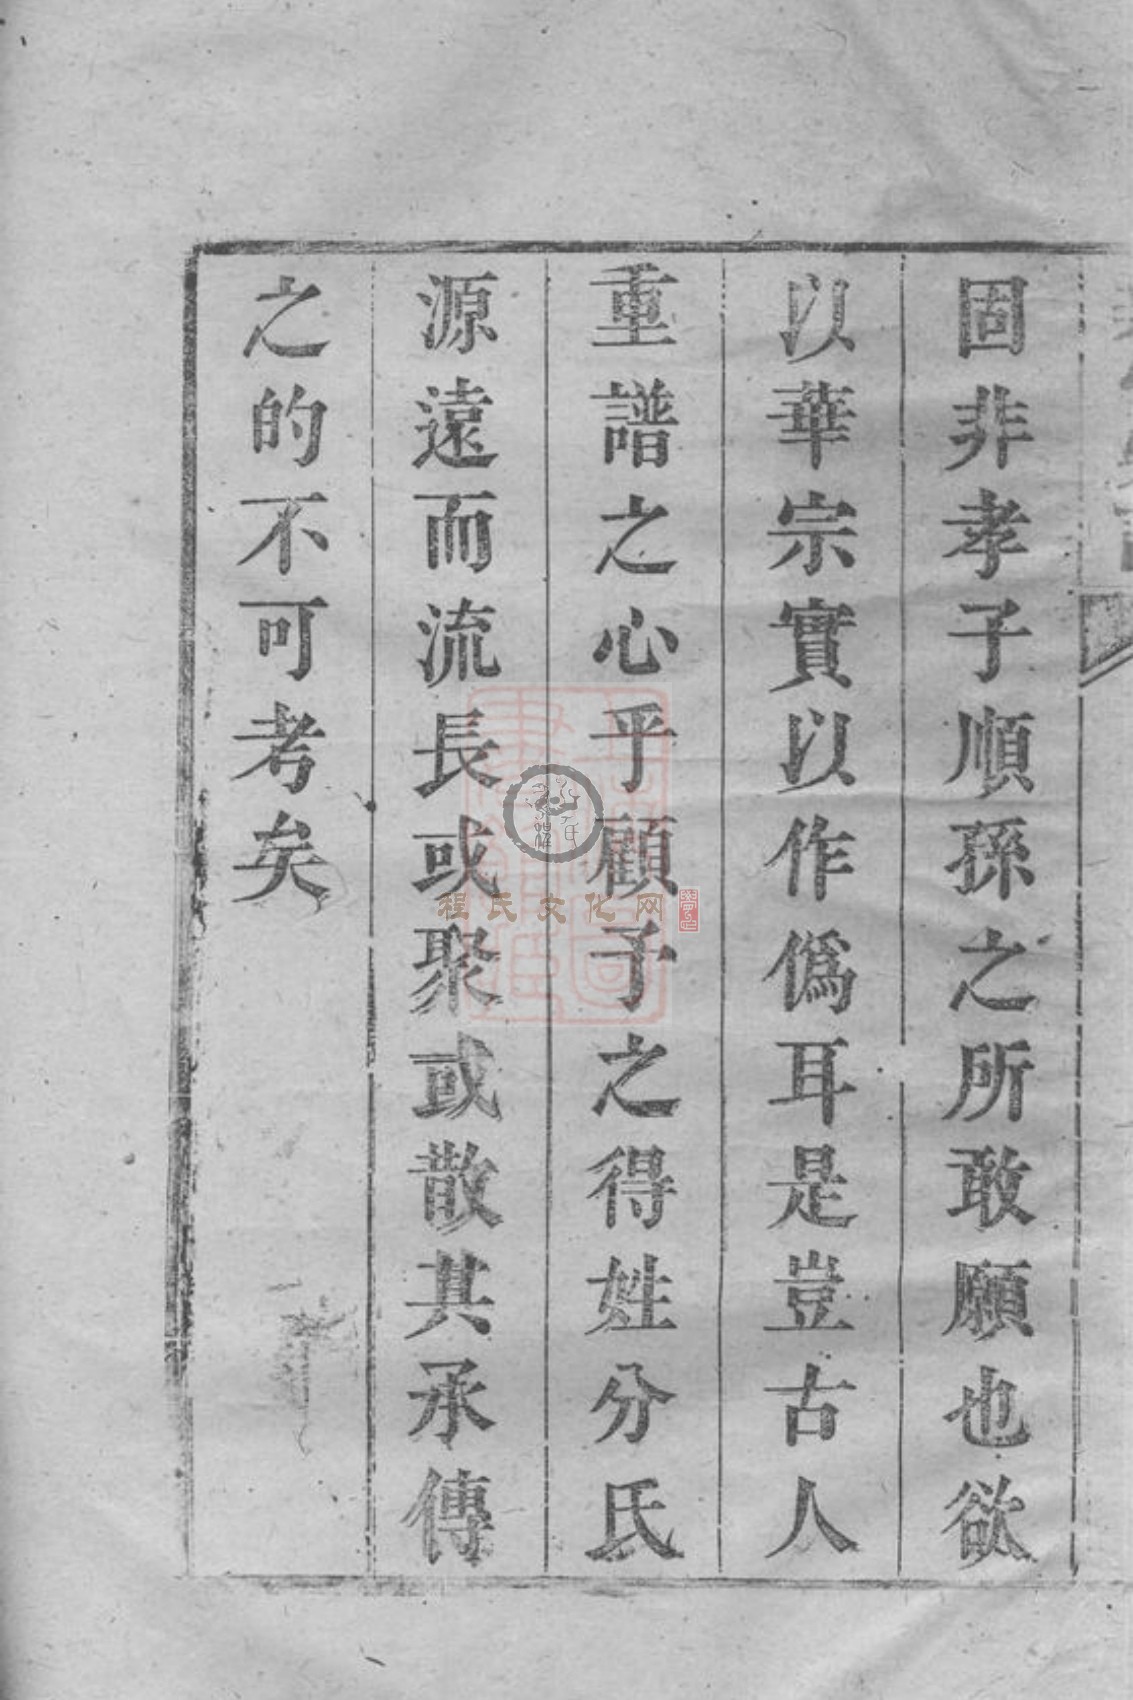 固非孝子順孫之所敢願也欲
以華宗實以作僞耳是豈古人
重譜之心乎顧予之得姓分氏
源遠而流長或聚或散其承傳
之的不可考矣
程氏文化网